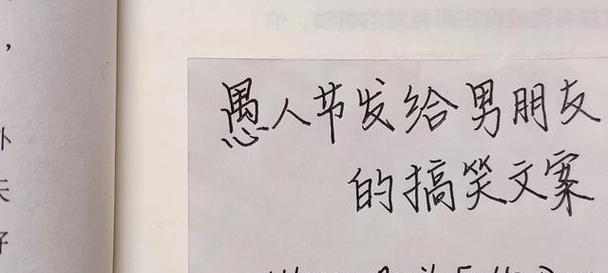 愚人节发给男朋友
的搞笑文案